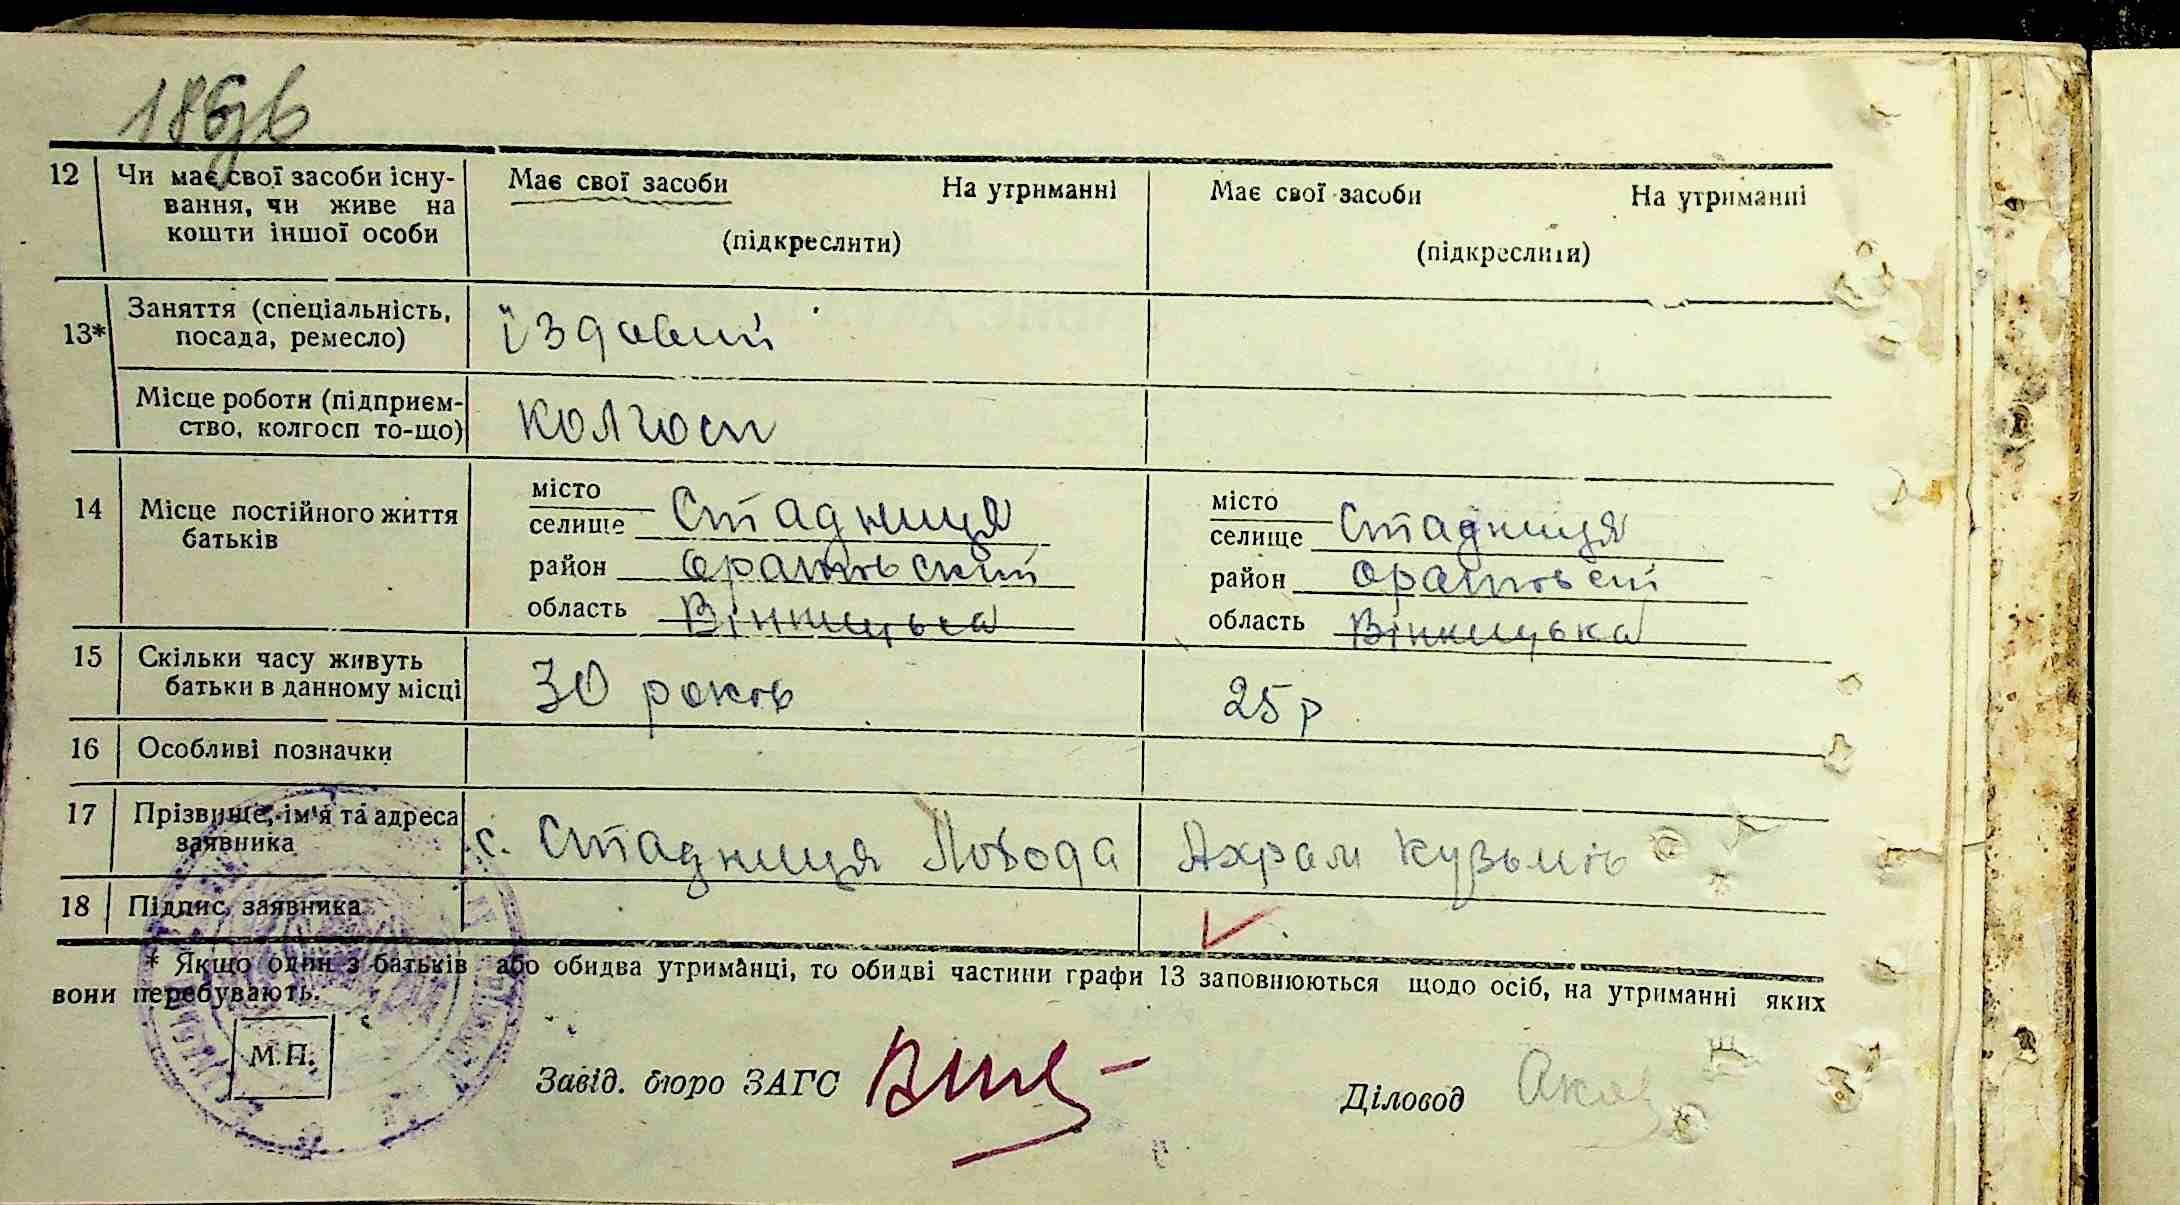 12 Чи має свої засоби існу- Має свої засоби На утриманні Має свої засоби На утриманні
вання, чи живе на
кошти іншої особи (підкреслити) (підкреслити)
13* Заняття (спеціальність, їздовий
посада, ремесло)
Місце роботи (підприєм- колгосп
ство, колгосп то-що)
14 Місце постійного життя місто місто
батьків селище Стадниця селище Стадниця
район Оратовский район Оратовсий
область Вінницька область Вінницька
15 Скільки часу живуть 30 років 25 р
батьки в данному місці
16 Особливі позначки
17 Прізвище, ім'я та адреса с. Стадниця Лобода Ахрам Кузьмів
заявника
18 Підпис заявника
* Якщо один з батьків або обидва утриманці, то обидві частини графи 13 заповнюються щодо осіб, на утриманні яких
вони перебувають.
М.П.
Завід. бюро ЗАГС Діловод